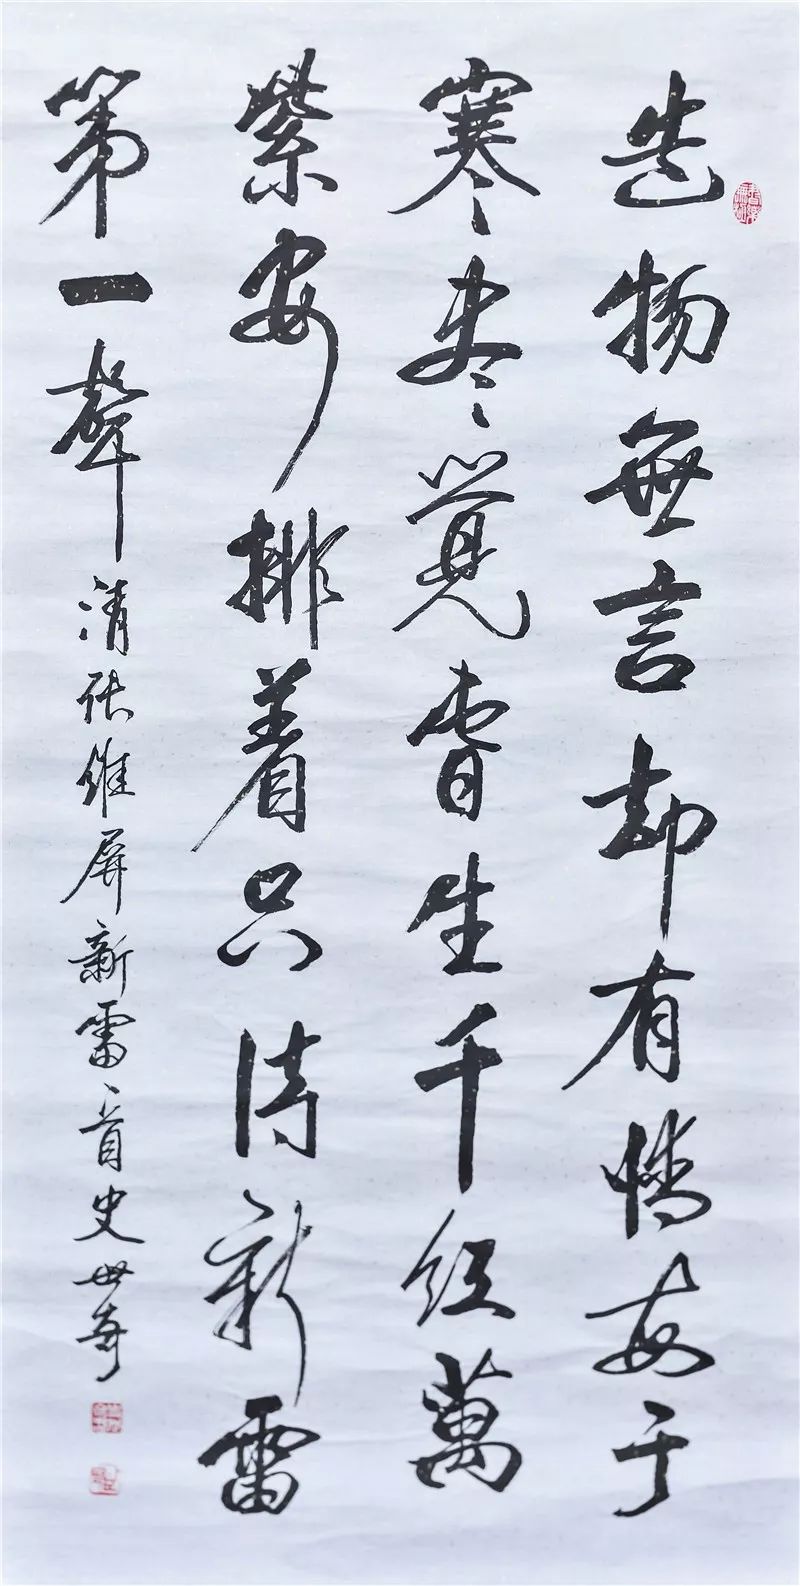 造物無言却有情每于
寒盡覺春生千红萬
紫安排着只待新雷
第一聲 清張維屏新雷一首史世奇